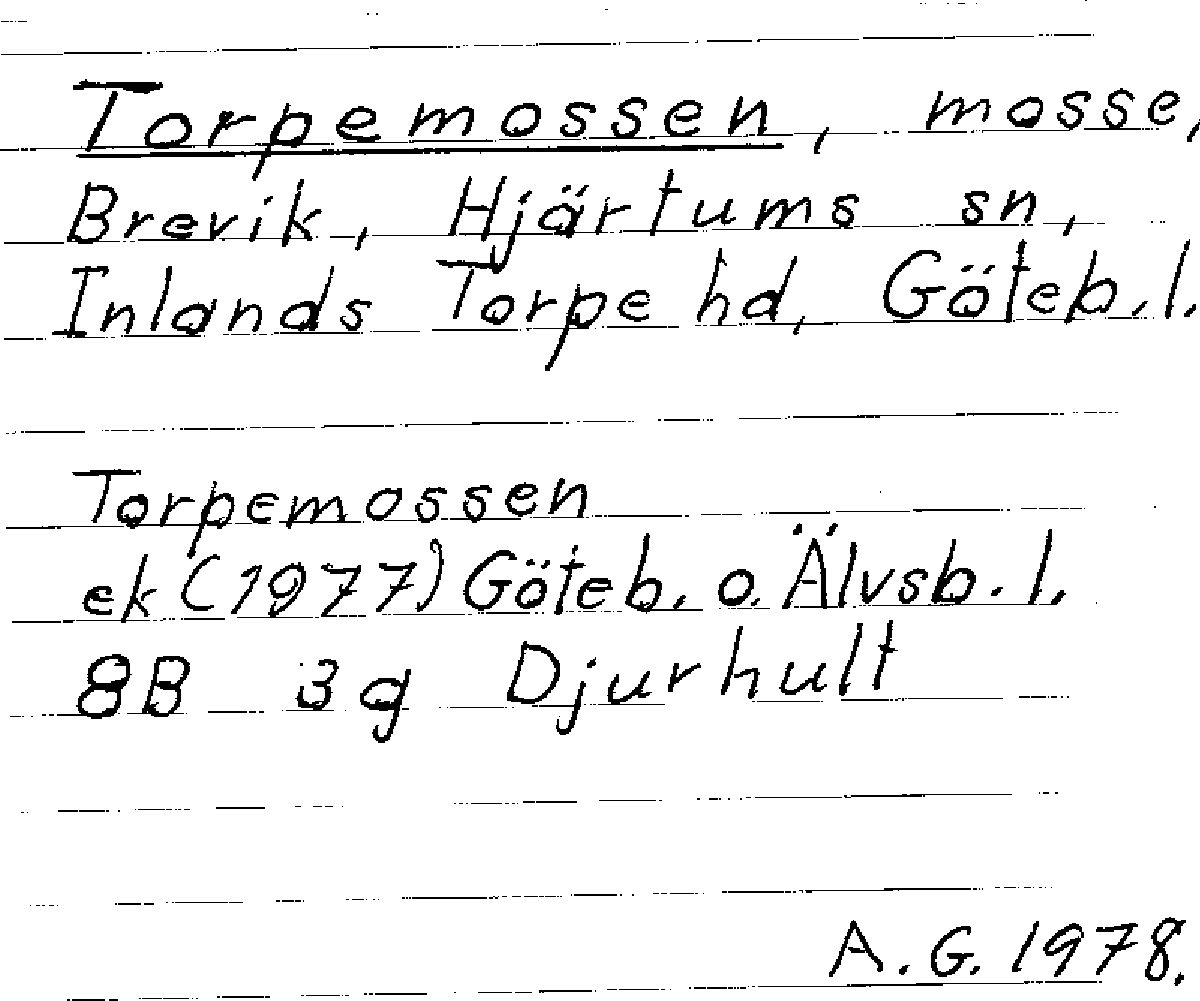 Torpemossen, mosse,
Brevik, Hjärtums sn,
Inlands Torpe hd, Göteb. l.
Torpemossen
ek (1977) Göteb. o. Älvsb. l.
8B 3g Djurhult
A. G. 1978.